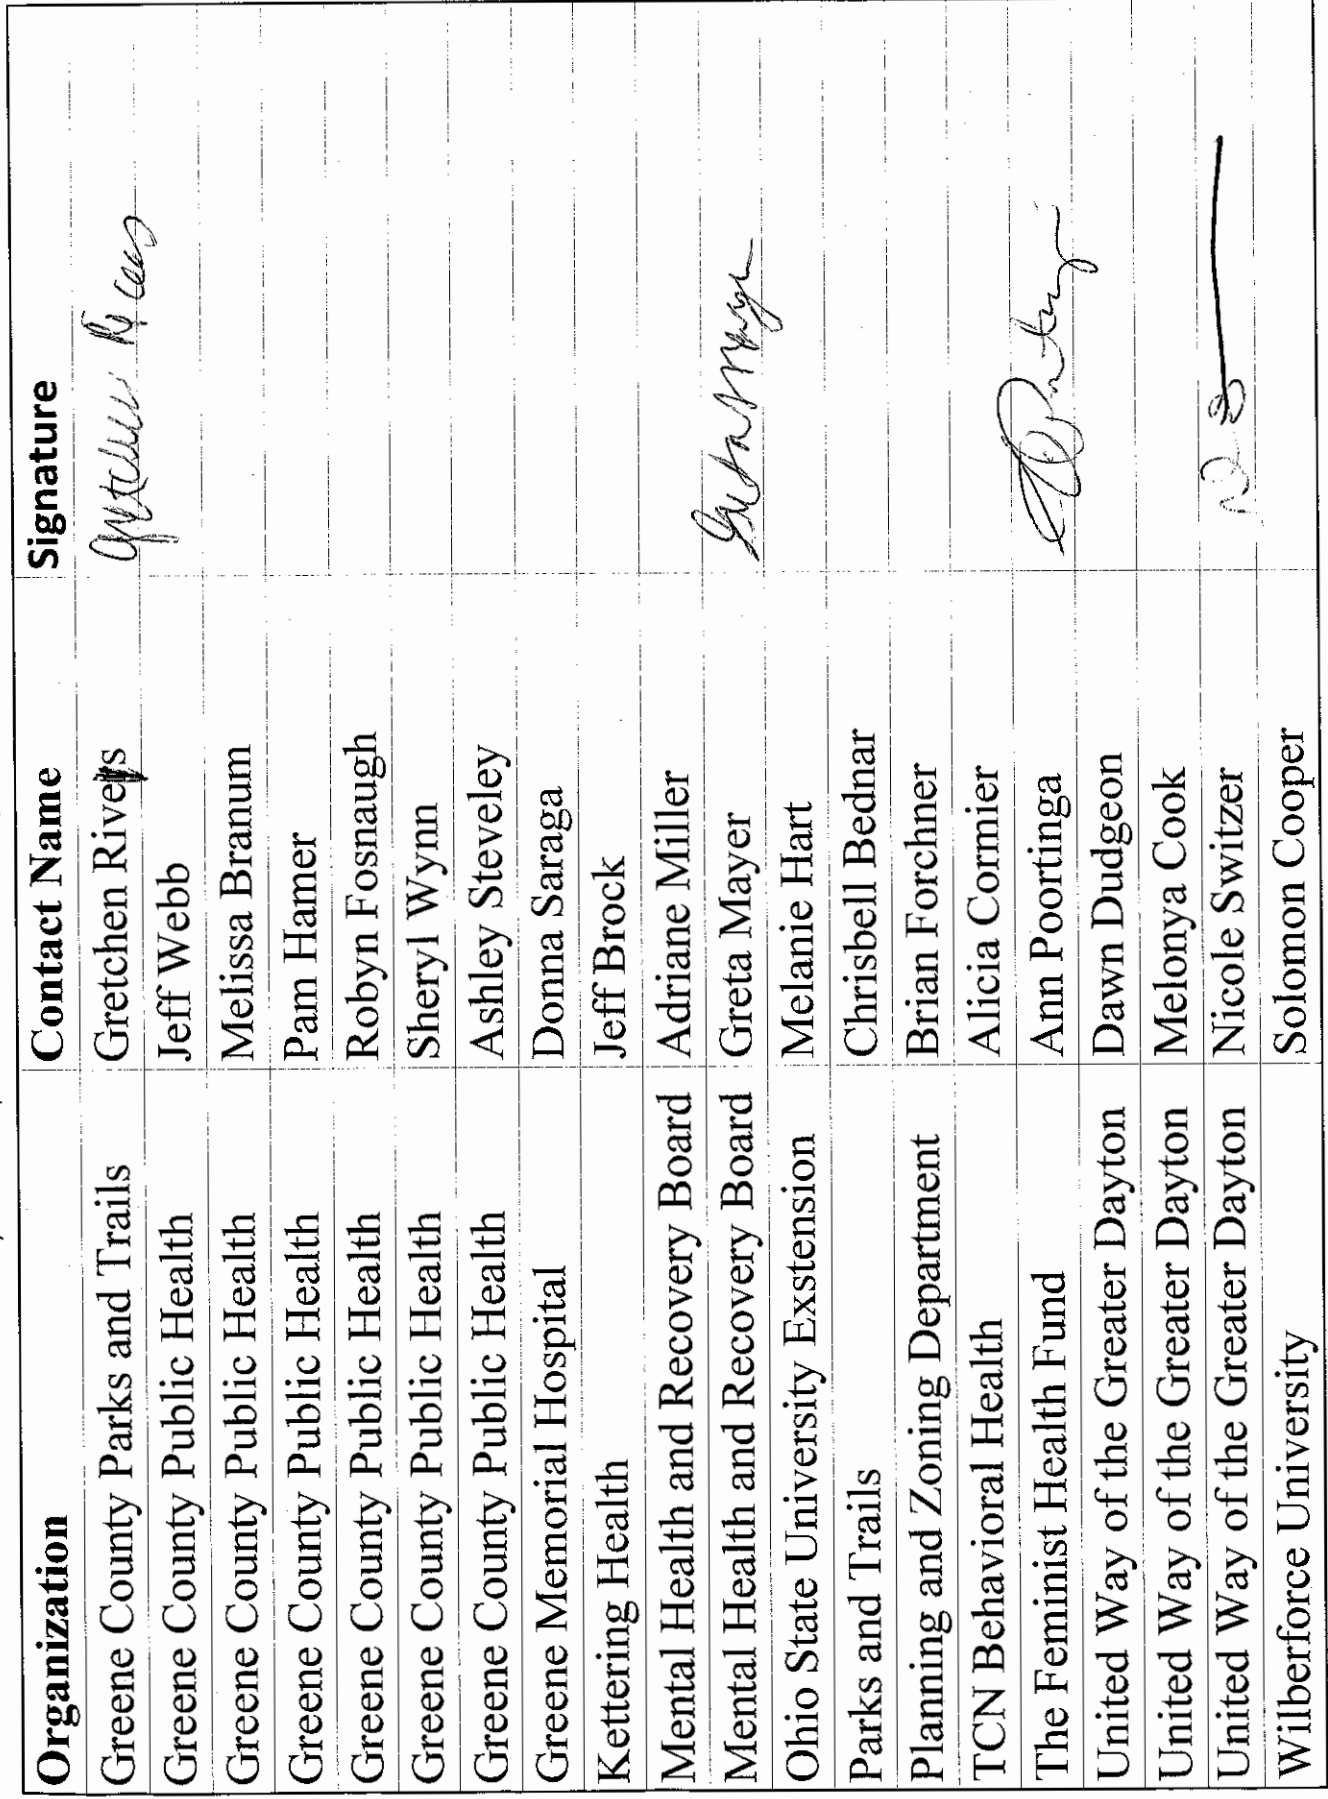 Organization Contact Name Signature
Greene County Parks and Trails Gretchen Rivers Gretchen Rivers
Greene County Public Health Jeff Webb
Greene County Public Health Melissa Branum
Greene County Public Health Pam Hamer
Greene County Public Health Robyn Fosnaugh
Greene County Public Health Sheryl Wynn
Greene County Public Health Ashley Steveley
Greene Memorial Hospital Donna Saraga
Kettering Health Jeff Brock
Mental Health and Recovery Board Adriane Miller
Mental Health and Recovery Board Greta Mayer Greta Mayer
Ohio State University Exstension Melanie Hart
Parks and Trails Chrisbell Bednar
Planning and Zoning Department Brian Forchner
TCN Behavioral Health Alicia Cormier
The Feminist Health Fund Ann Poortinga
United Way of the Greater Dayton Dawn Dudgeon
United Way of the Greater Dayton Melonya Cook
United Way of the Greater Dayton Nicole Switzer
Wilberforce University Solomon Cooper